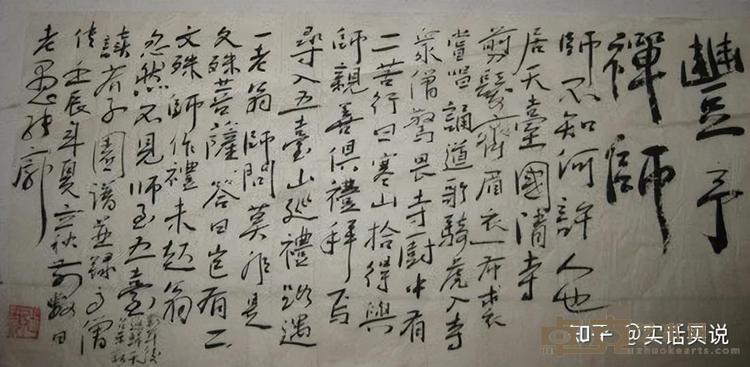 豐干
禪師
師不知何許人也
居天臺國清寺
剪髮齊眉衣布裘
嘗唱誦道歌騎虎入寺
眾僧驚畏寺廚中有
二苦行曰寒山拾得與
師親善俱禮拜
尋入五臺山巡禮路遇
一老翁師問莫非是
文殊菩薩答曰豈有二
文殊師作禮未起翁
忽然不見師至五臺
讀芥子園譜並録高僧
傳壬辰年夏立秋前數日
老愚
知乎 @实话实说